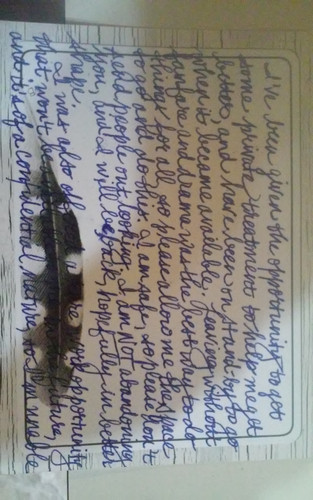 I've been given the opportunity to get
some private treatment to help me get
better, and have been on stand-by to go
when it became available. Leaving without
fanfare and drama was the best way to do
things for all, so please allow me the space
to go and do this. I am safe, so please don't
send people out looking. I am not abandoning
you, and I will be back, hopefully in better
shape.
I was also off the opportunity
that won't be
and is of a confidential nature, so I'll unable